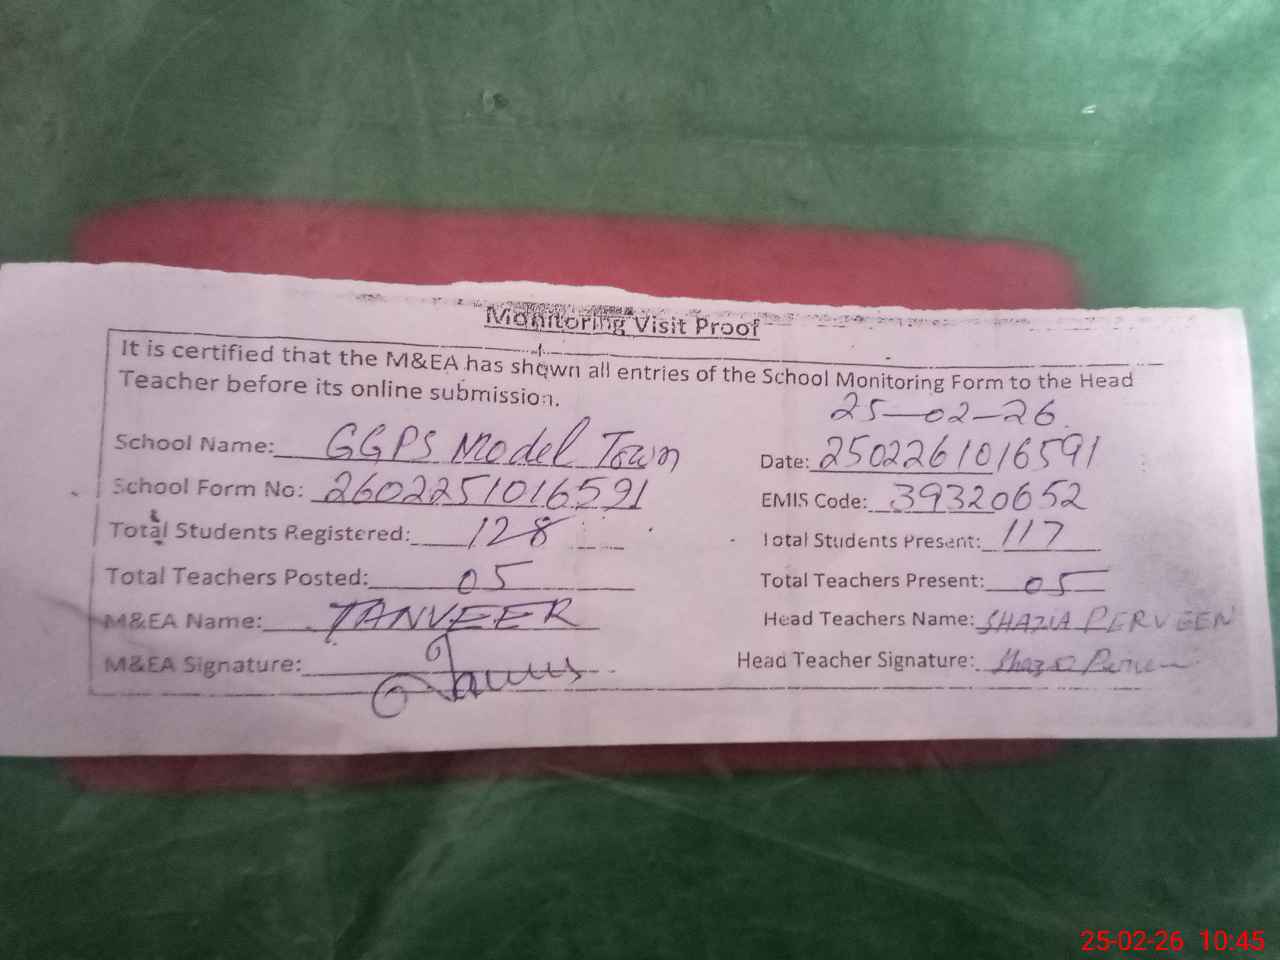 Monitoring Visit Proof
It is certified that the M&EA has shown all entries of the School Monitoring Form to the Head
Teacher before its online submission.
25-02-26
School Name: GGPS Model Town Date: 2502261016591
School Form No: 2602251016591 EMIS Code: 39320652
Total Students Registered: 128 Total Students Present: 117
Total Teachers Posted: 05 Total Teachers Present: 05
M&EA Name: TANVEER Head Teachers Name: SHAZIA PERVEEN
M&EA Signature: Head Teacher Signature: Shazia Perveen
25-02-26 10:45